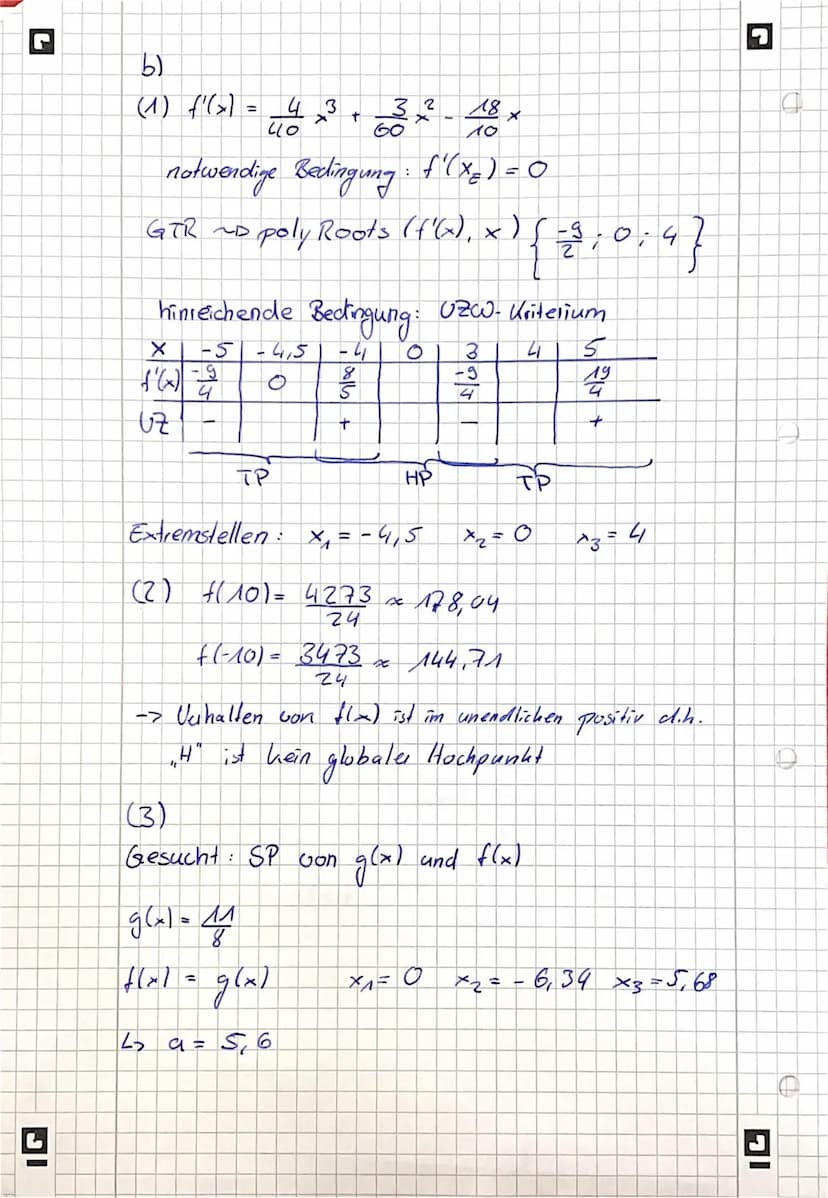 b)
(1) f'(x) = 4/40 x³ + 3/60 x² - 18/10 x
notwendige Bedingung: f'(x_E) = 0
GTR ~> polyRoots (f'(x), x) { -9/2 ; 0 ; 4 }
hinreichende Bedingung: VZW-Kriterium
x | -5 | -4,5 | -4 | 0 | 3 | 4 | 5
f'(x) | -9/4 | 0 | 8/5 | | -9/4 | | 19/4
VZ | - | | + | | - | | +
TP HP TP
Extremstellen: x₁ = -4,5 x₂ = 0 x₃ = 4
(2) f(10) = 4273/24 ≈ 178,04
f(-10) = 3473/24 ≈ 144,71
-> Verhalten von f(x) ist im unendlichen positiv d.h.
„H" ist kein globaler Hochpunkt
(3)
Gesucht: SP von g(x) und f(x)
g(x) = 11/8
f(x) = g(x) x₁ = 0 x₂ = -6,34 x₃ = 5,68
↳ a = 5,6